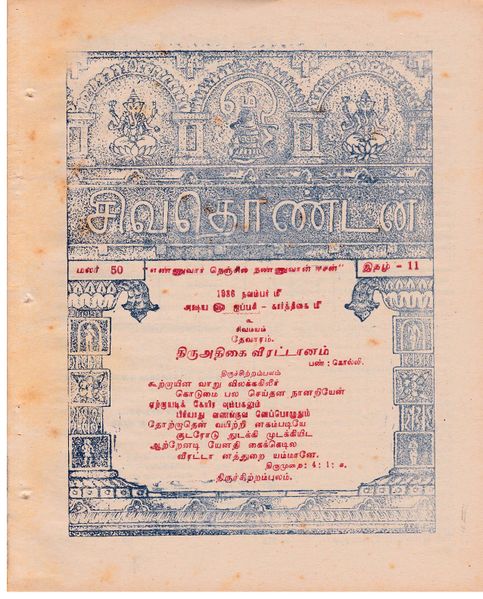 சிவதொண்டன்
மலர் 50
"எண்ணுவார் நெஞ்சில் நண்ணுவான் ஈசன்"
இதழ் - 11
1986 நவம்பர் மீ
அக்ஷய ௵ ஐப்பசி - கார்த்திகை மீ
உ
சிவமயம்
தேவாரம்.
திருஅதிகை வீரட்டானம்
பண் : கொல்லி.
திருச்சிற்றம்பலம்
கூற்றாயின வாறு விலக்ககிலீர்
கொடுமை பல செய்தன நானறியேன்
ஏற்றாயடிக் கேயிர வும்பகலும்
பிரியாது வணங்குவ னெப்பொழுதும்
தோற்றாதென் வயிற்றி னகம்படியே
குடரோடு துடக்கி முடக்கியிட
ஆற்றேனடி யேனதி கைக்கெடில
வீரட்டா னத்துறை யம்மானே.
திருமுறை: 4 : 1 :
திருச்சிற்றம்பலம்.